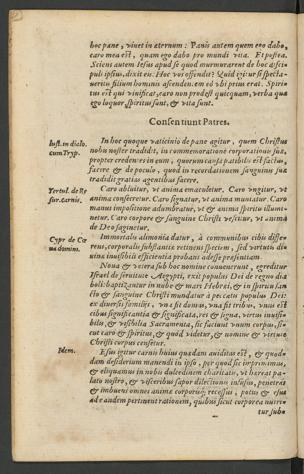 hoc pane, viuet in æternum : Panis autem quem ego dabo,
caro mea est, quam ego dabo pro mundi vita. Et postea.
Sciens autem Iesus apud se quod murmurarent de hoc disci-
puli ipsius, dixit eis. Hoc vos offendit? Quid igitur si specta-
ueritis filium hominis ascendentem eò vbi prius erat. Spiri-
tus est qui viuificat, caro non prodest quicquam, verba quæ
ego loquor spiritus sunt, & vita sunt.
Consentiunt Patres.
Iust. in dialo.
cum Tryp.
In hoc quoque vaticinio de pane agitur, quem Christus
nobis noster tradidit, in commemorationē corporationis suæ,
propter credentes in eum, quorum causa patibilis est factus,
facere & de poculo, quod in recordationem sanguinis sui
tradidit gratias agentibus facere.
Tertul. de Re
sur. carnis.
Caro abluitur, vt anima emaculetur. Caro vngitur, vt
anima consecretur. Caro signatur, vt anima muniatur. Caro
manus impositione adumbratur, vt & anima spiritu illumi-
netur. Caro corpore & sanguine Christi vescitur, vt anima
de Deo saginetur.
Cypr. de Cœ
na domini.
Immortalis alimonia datur, à communibus cibis diffe-
rens, corporalis substantiæ retinens speciem, sed virtutis di-
uinæ inuisibili efficientia probans adesse præsentiam.
Noua & vetera sub hoc nomine conuenerunt, egreditur
Israel de seruitute Aegypti, exit populus Dei de regno dia
boli: baptizantur in nube & mari Hebræi, & in spiritu san
cto & sanguine Christi mundatur à peccatis populus Dei:
ex diuersis familiis, vna fit domus, vna fit tribus, vnus est
cibus significantia & significata, res & signa, virtus inuisi-
bilis, & visibilia Sacramenta, sic faciunt vnum corpus, si-
cut caro & spiritus, & quod videtur, & nomine & virtute
Christi corpus censetur.
Idem.
Esus igitur carnis huius quædam auiditas est, & quod-
dam desiderium manendi in ipso, per quod sic imprimimus,
& eliquamus in nobis dulcedinem charitatis, vt hæreat pa-
lato nostro, & visceribus sapor dilectionis infusus, penetrās
& imbuens omnes animæ corporisq; recessus, potus & esus
ad eandem pertinent rationem, quibus sicut corporea nutri-
tur sub-